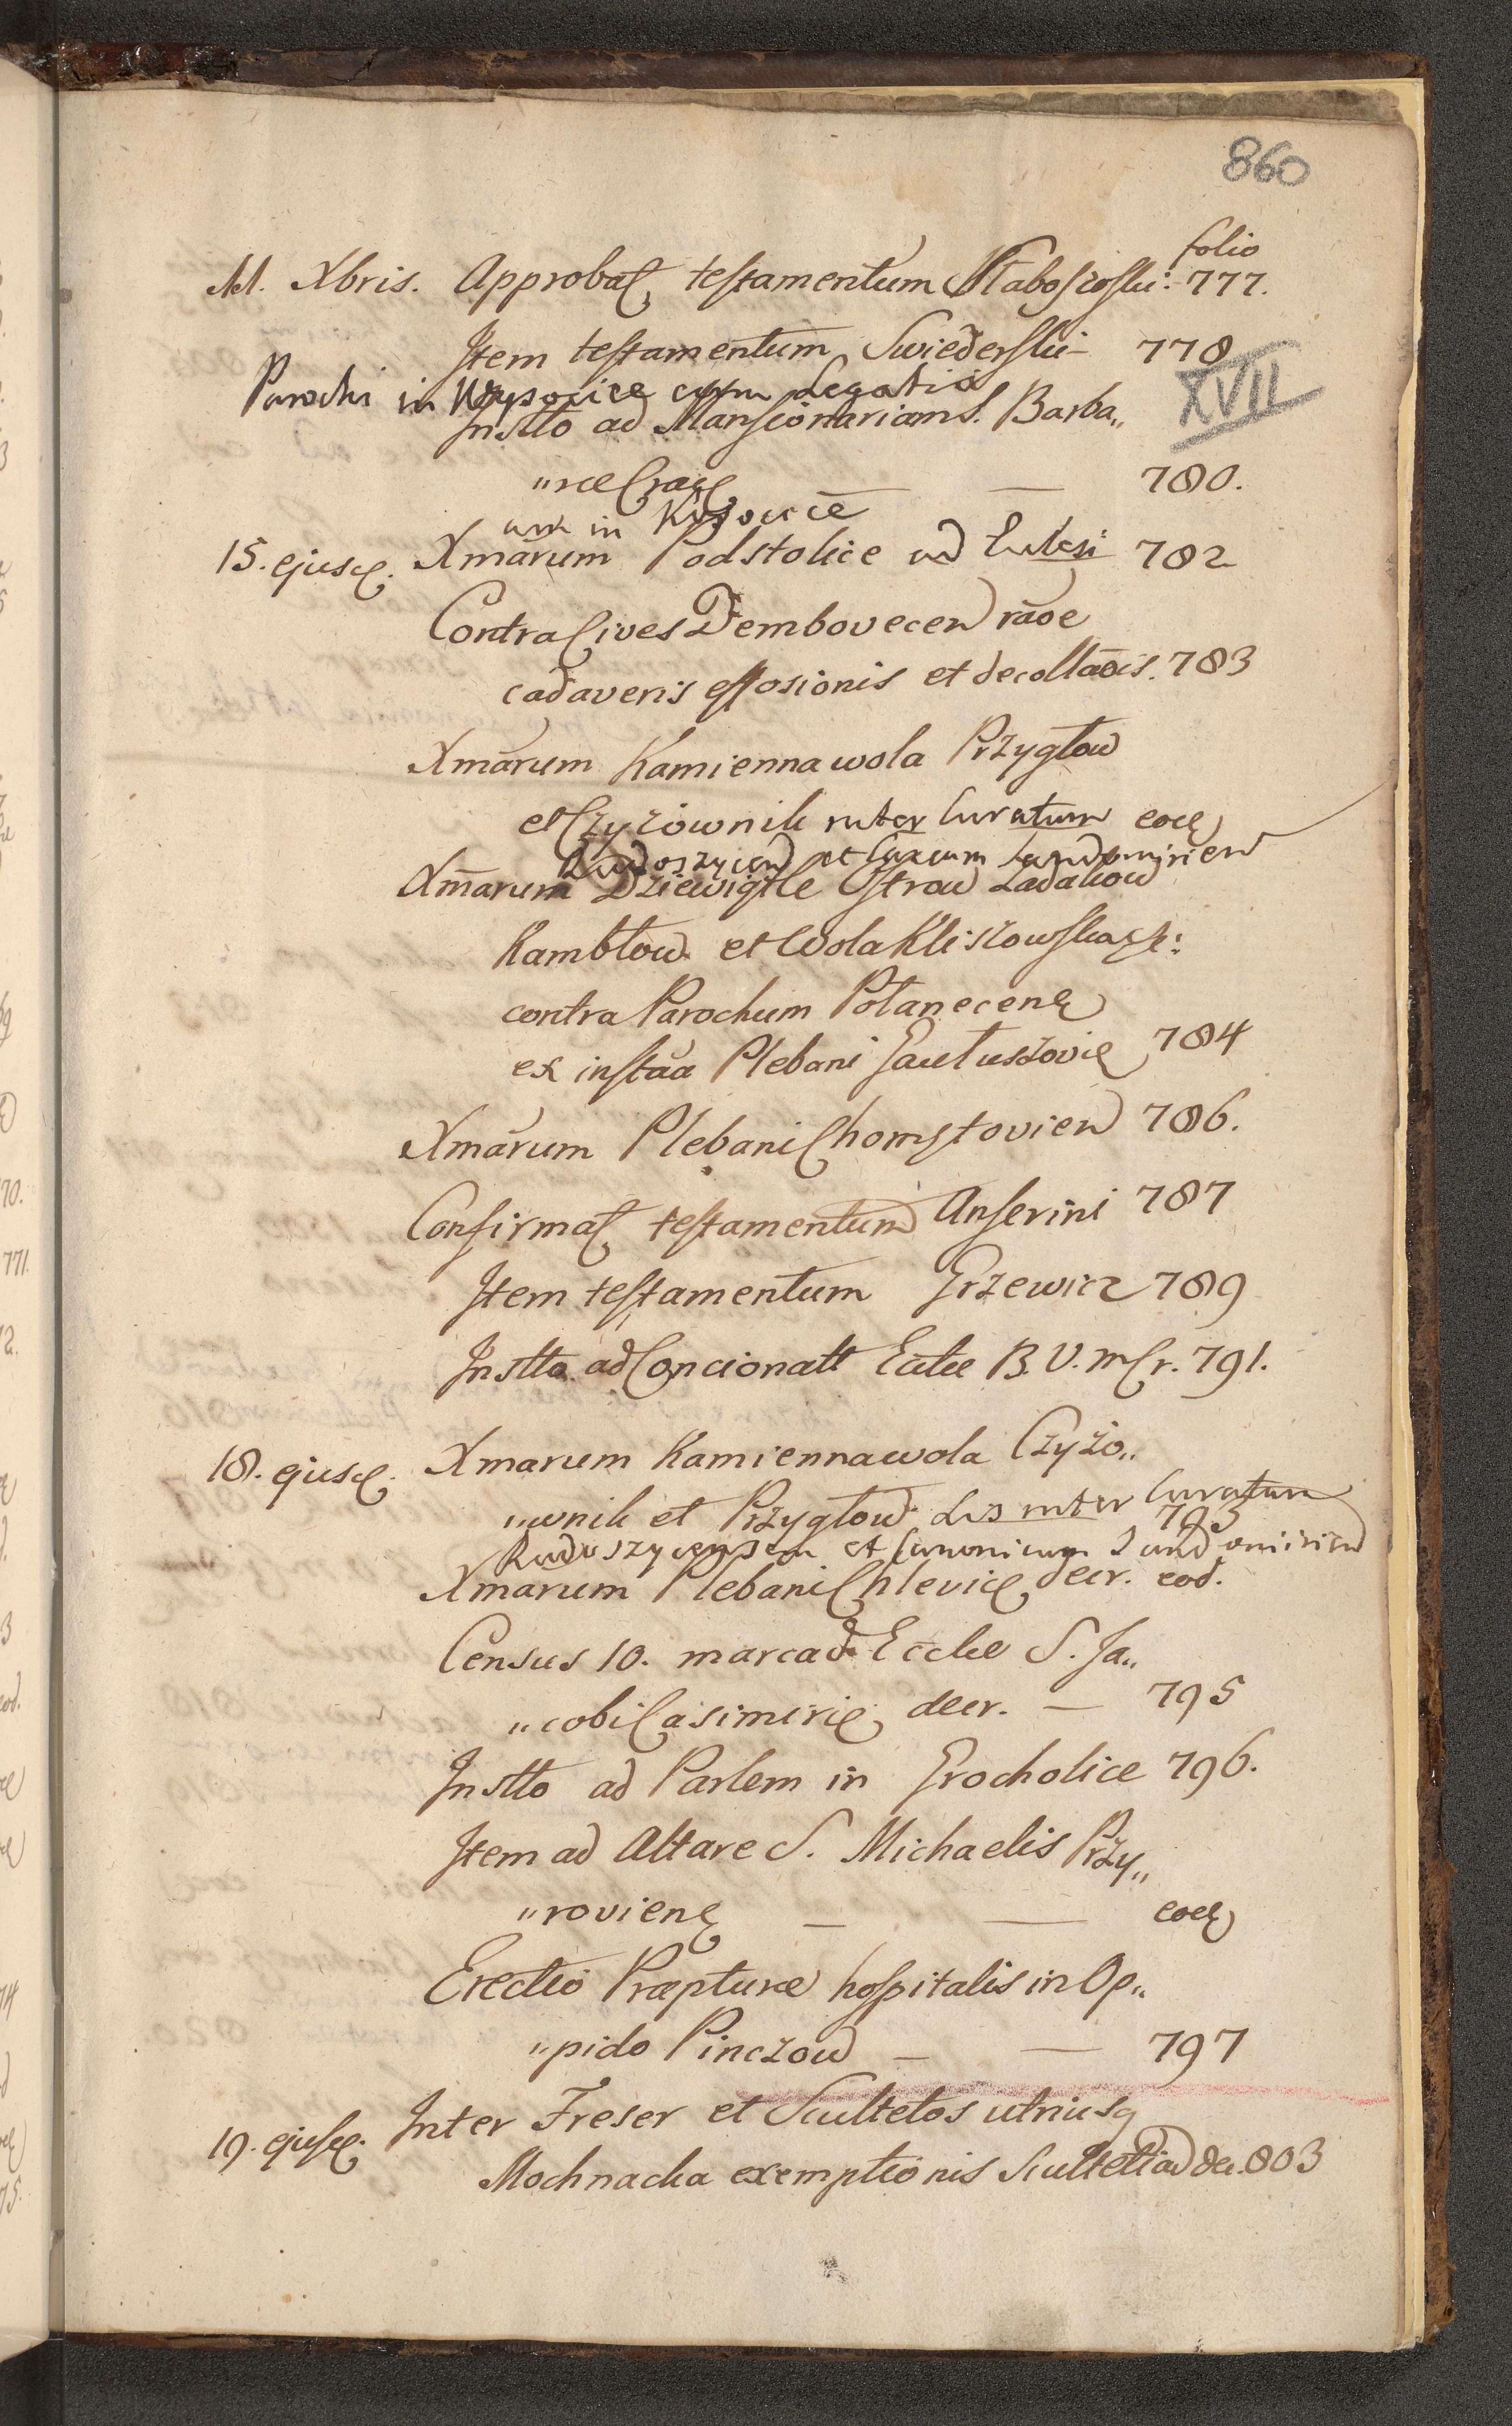 860
folio
11. Xbris. Approbat testamentum Słaboszoski: 777.
Item testamentum Swiederski - 778
XVII
Parochi in Wysocice cum Legatis
Instto ad Mansionariam S. Barba„
„ræ Crac — — 780.
in Kijowice
15. ejusd. Xmarum Podstolice ad 782
Contra Cives Dembovecen raoe
cadaveris effosionis et decollaōis. 783
Xmarum Kamiennawola Przygłow
et Czyżownik inter Curatum eod
Radoszycen et Sandomirien
Xmarum Dziewiątle Ostrow Ładakow
Kambłow. et Wola Kliszowska:
contra Parochum Połanecene
ex instāa Plebani Gautuszovie 784
Xmarum Plebani Chomętovien 786.
Confirmat testamentum Anserini 787
Item testamentum Grzewicz 789
Instto ad Concionatt Eccłæ B. V. M Cr. 791.
18. ejusd. Xmarum Kamiennawola Czyżo„
„wnik et Przygłow. Lis inter Curatum 793
Radoszycensem et Canonicum Sandomirien
Xmarum Plebani Chlevice decr. eod.
Census 10. marcad Eccłæ S. Ja„
„cobi Casimirie decr. — 795
Instto ad Parlem in Grocholice 796.
Item ad Altare S. Michaelis Przy„
„roviene — — eod
Erectio Præpturæ hospitalis in Op„
„pido Pinczow — — 797
19. ejusd. Inter Freser et Scultetos utriusq
Mochnacka exemptionis Scultetiad de. 803